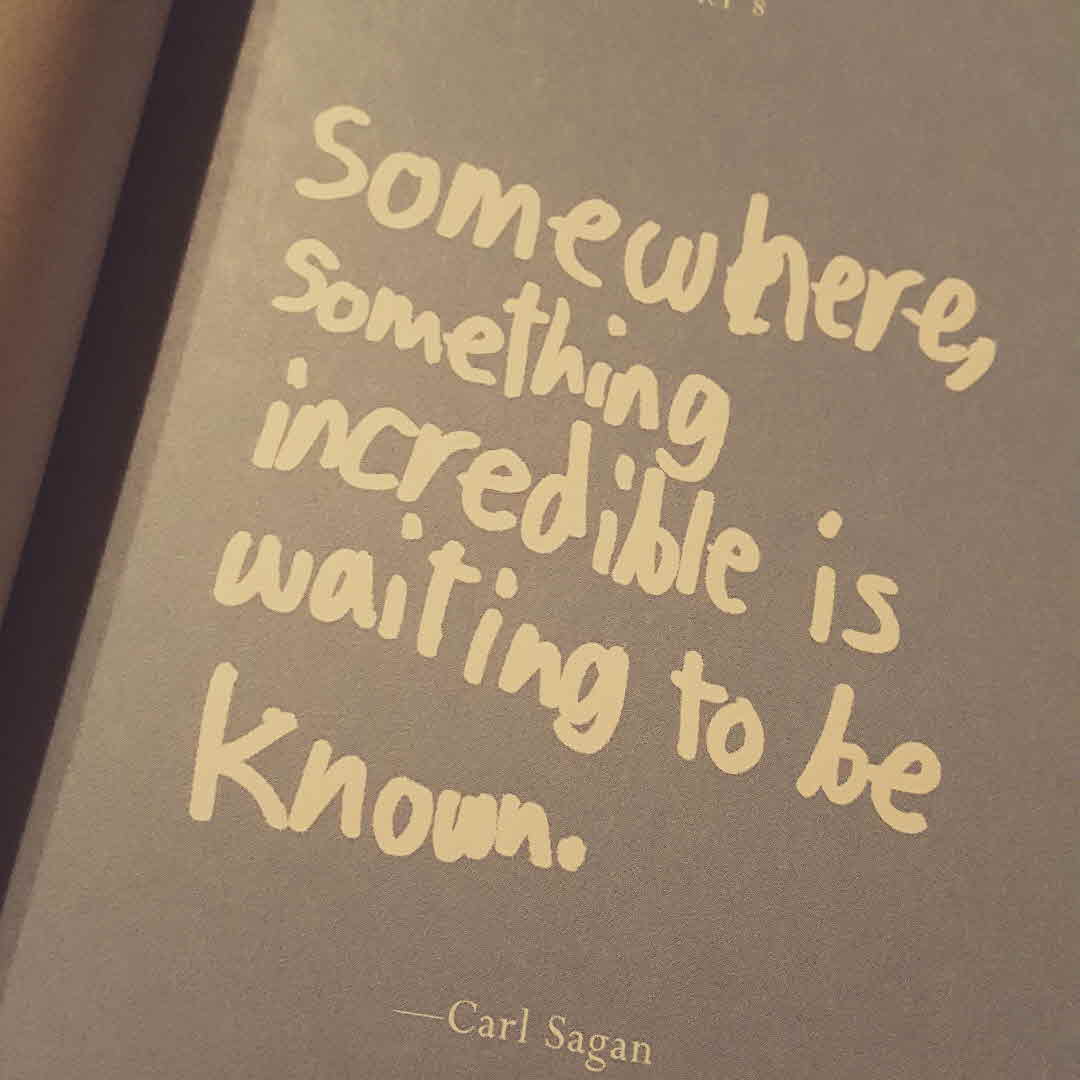 Somewhere,
something
incredible is
waiting to be
Known.
—Carl Sagan